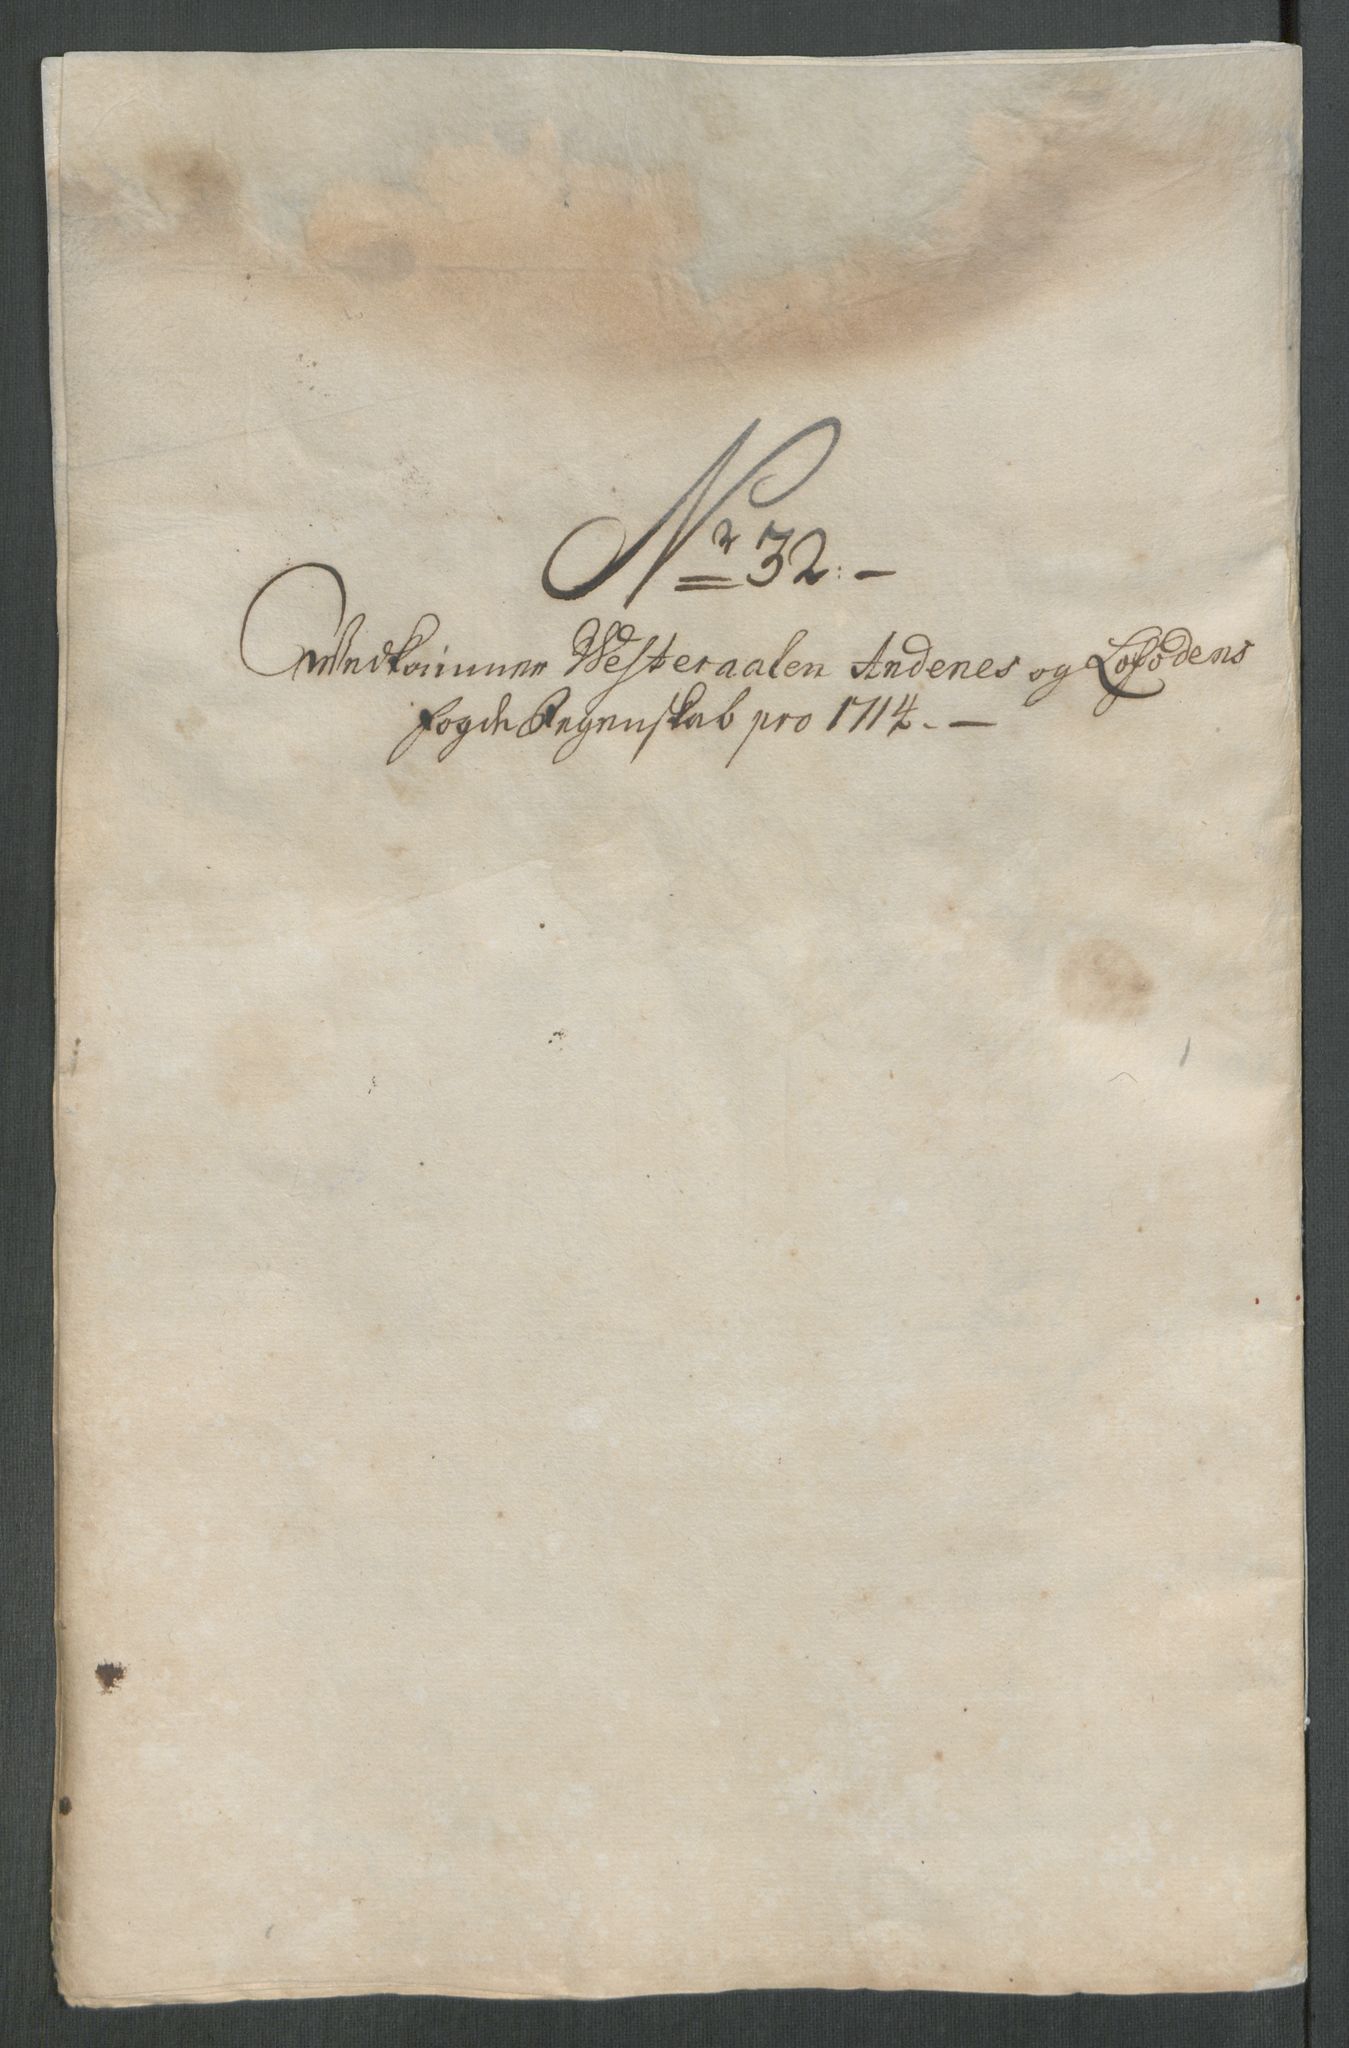 Nr 32:-
Vedkommer Westeraalen Andenes og Lofodens
fogde Regenskab pro 1714.-